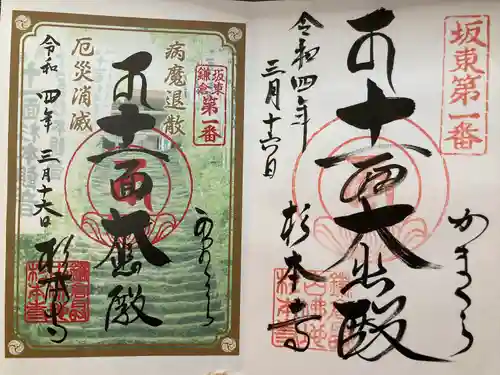 坂東第一番
かまくら
十一面大悲殿
令和四年
三月十六日
杉本寺
坂東
鎌倉
第一番
病魔退散
かまくら
十一面大悲殿
厄災消滅
令和四年 三月十六日
杉本寺